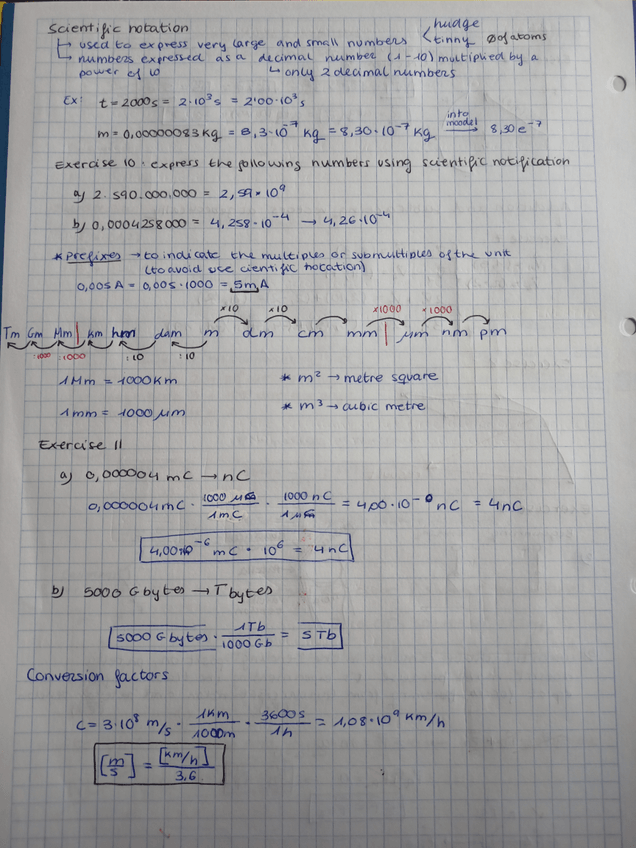 Scientific notation
hudge
used to express very large and small numbers < tinny ∅ of atoms
numbers expressed as a decimal number (1-10) multiplied by a
power of 10 ↳ only 2 decimal numbers
Ex: t = 2000s = 2·10³s = 2'00·10³s
m = 0,00000083kg = 8,3·10⁻⁷ kg = 8,30·10⁻⁷ kg into moodel → 8,30e⁻⁷
Exercise 10: express the following numbers using scientific notification
a) 2.590.000.000 = 2,59 × 10⁹
b) 0,0004258000 = 4,258·10⁻⁴ → 4,26·10⁻⁴
* prefixes → to indicate the multiples or submultiples of the unit
(to avoid use cientific notation)
0,005A = 0,005·1000 = 5mA
×10 ×10 ×1000 ×1000
Tm Gm Mm | km hm dam m dm cm mm | µm nm pm
:1000 :1000 :10 :10
1Mm = 1000Km * m² → metre square
1mm = 1000 µm * m³ → cubic metre
Exercise 11
a) 0,000004 mC → nC
0,000004mC · 1000 µC / 1mC · 1000 nC / 1 µC = 4,00·10⁻⁰ nC = 4nC
4,00·10⁻⁶ mC · 10⁶ = 4nC
b) 5000 Gbytes → Tbytes
5000 Gbytes · 1Tb / 1000 Gb = 5 Tb
Conversion factors
c = 3·10⁸ m/s · 1Km / 1000m · 3600s / 1h = 1,08·10⁹ km/h
[m/s] = [km/h] / 3,6